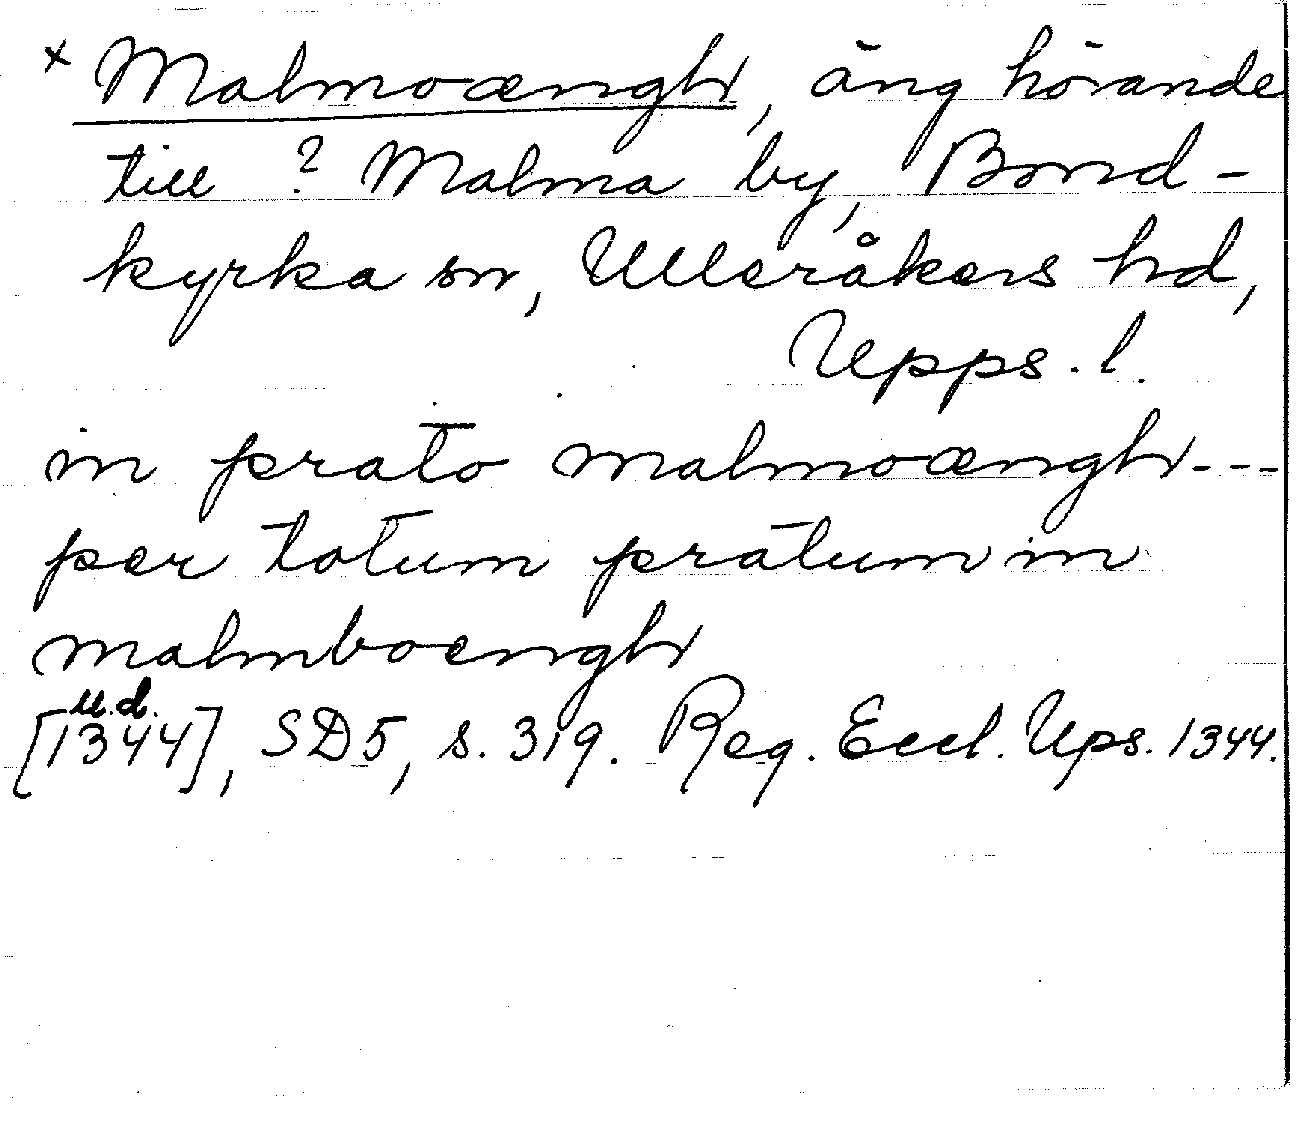 x Malmoængh, äng hörande
till ? Malma by, Bond-
kyrka sn, Ulleråkers hd,
Upps. l.
in prato malmoængh---
per totum pratum in
malmboengh
u.d.
[1344], SD5, s. 319. Reg. Eccl. Ups. 1344.